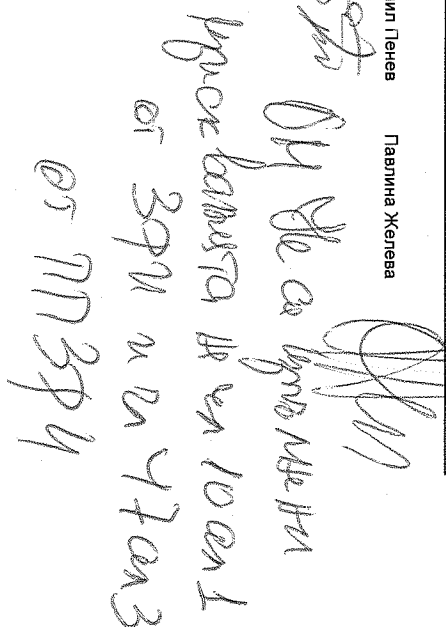 ил Пенев Павлина Желева
ВЧ не са изпълнени
изискванията на чл 10 ал 1
от ЗФИ и чл 47 ал 3
от ППЗФИ